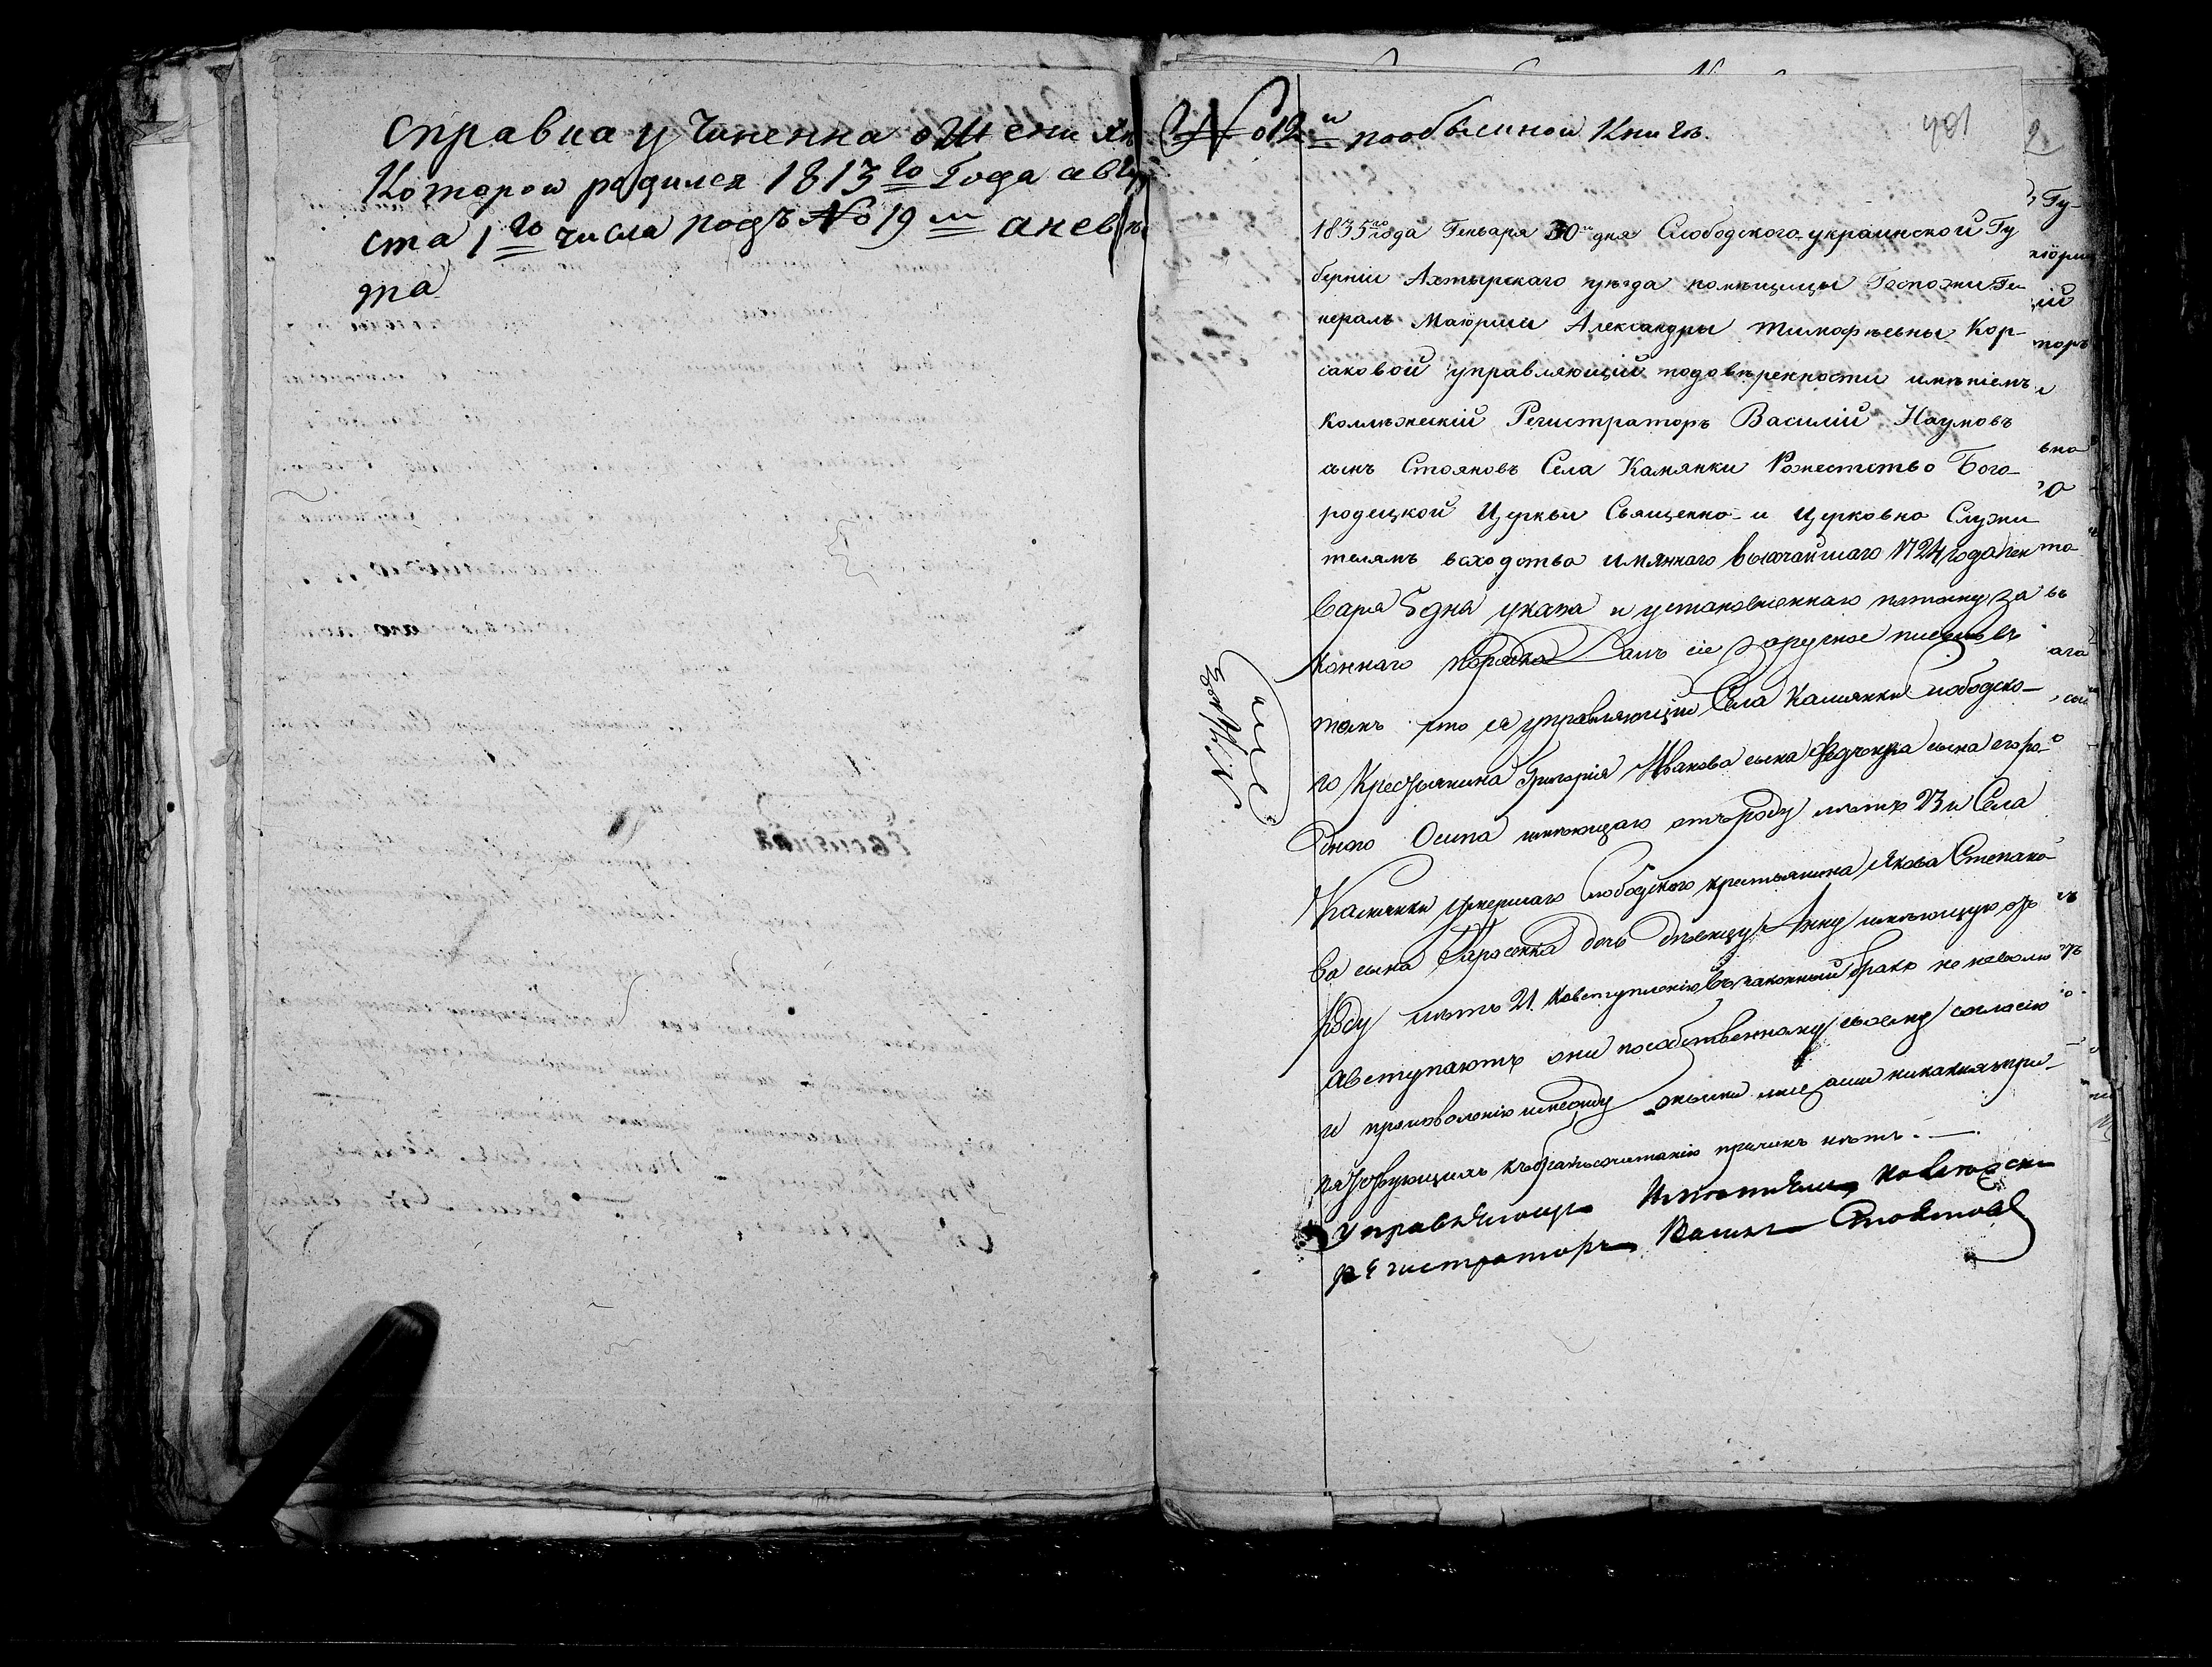 справка учиненна о Жених
Которои родился 1813го Года авгу
ста 1го числа подъ №19м аневѣ
та
№12и пообыскнои Книгѣ.
401
1835го года Генъваря 30 дня Слободскоукраинской Гу
берніи Ахтырскаго уѣзда помѣщицы Госпожи Ге
нералъ Маіорши Александры Тимофѣевны Кор-
саковой управляющій подовѣренности имѣніемъ
Коллѣжскій Регистраторъ Василій Наумовъ
сынъ Стояновъ Села Камянки Рожествтво Бого-
родицкой Церкви Священно- и Церковно Служи
телямъ всходство имяннаго высочайшаго 1724 года Ген
варя 5 дня указа и установленнаго потому за
коннаго порядка Далъ сіе заручное писмо въ
томъ что я управляющій Села Камянки Слободско-
го Крестьянина Григорія Иванова сына Федченка сына его ро-
днаго Осипа имѣющаго отъроду лѣтъ 23 и Села
Камянки умершаго Слободского крестьянина Якова Степано-
ва сына дочь дѣвицу Анну имѣющую отъ
роду лѣтъ 21 Ковступленію въ законный бракъ не неволю
авступаютъ они пособственному своему согласію
и произволенію имежду оными лицами никакихъ пре-
пятствующихъ къбракосочетанію причинъ нѣтъ.
управляющи Имѣніемъ
регистраторъ Василь Стояновъ